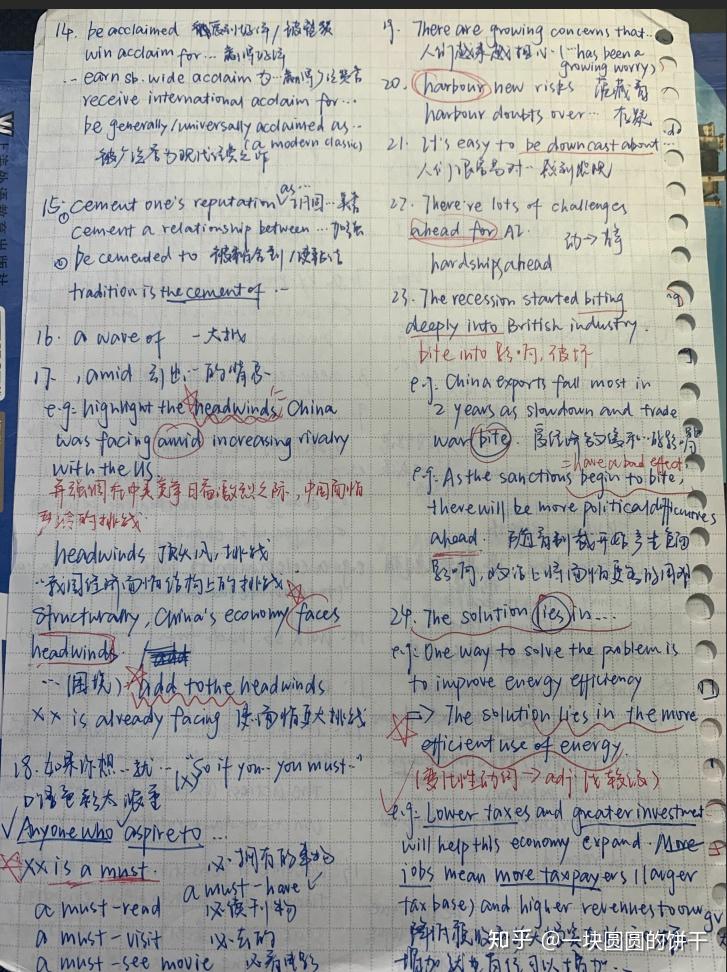 14. be acclaimed
win acclaim for… 赢得好评
earn sb. wide acclaim 为…赢得广泛赞誉
receive international acclaim for…
be generally/universally acclaimed as…
(a modern classic)
被广泛誉为现代经典之作
15. ① cement one's reputation as…巩固…声誉
cement a relationship between … 加强
② be cemented to 被粘合到
tradition is the cement of …
16. a wave of 一大批
17. , amid 引出…的情景
e.g: highlight the headwinds China
was facing amid increasing rivalry
with the US.
并强调在中美竞争日益激烈之际，中国面临
的挑战
headwinds 顶头风，挑战
…我国经济面临结构上的挑战
Structurally, China's economy faces
headwinds.
…(困境) add to the headwinds
XX is already facing 使面临更大挑战
18. 如果你想…就… (×) "So if you… you must…"
口语色彩太浓重
✓ Anyone who aspire to …
XX is a must. 必拥有的事物
a must-have ✓
a must-read 必读刊物
a must-visit 必去的
a must-see movie 必看电影
19. There are growing concerns that…
人们越来越担心 (…has been a
growing worry)
20. harbour new risks 蕴藏着
harbour doubts over… 存疑
21. It's easy to be downcast about…
人们很容易对…感到
22. There're lots of challenges
ahead for AI.
hardships ahead
23. The recession started biting
deeply into British industry.
bite into 影响，破坏
e.g. China exports fall most in
2 years as slowdown and trade
war bite.
= have a bad effect
e.g. As the sanctions begin to bite,
there will be more political difficulties
ahead. 随着制裁开始产生负面
影响，政治上将面临更多的困难
24. The solution lies in…
e.g: One way to solve the problem is
to improve energy efficiency
=> The solution lies in the more
efficient use of energy.
(变化性动词 → adj 比较级)
e.g: Lower taxes and greater investment
will help this economy expand. More
jobs mean more taxpayers (larger
tax base) and higher revenues to our gov
知乎 @一块圆圆的饼干